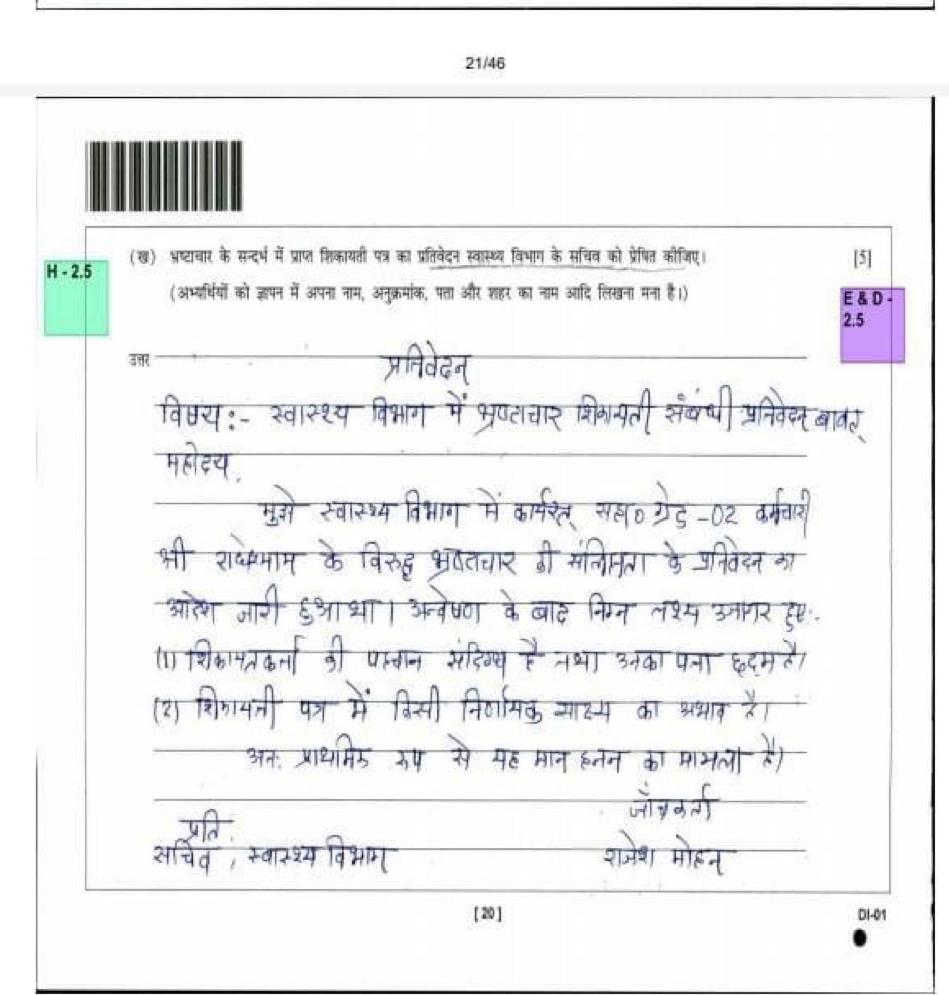 21/46
(ख) भ्रष्टाचार के सन्दर्भ में प्राप्त शिकायती पत्र का प्रतिवेदन स्वास्थ्य विभाग के सचिव को प्रेषित कीजिए। [5]
H - 2.5
(अभ्यर्थियों को ज्ञापन में अपना नाम, अनुक्रमांक, पता और शहर का नाम आदि लिखना मना है।)
E & D -
2.5
उत्तर
प्रतिवेदन
विषय:- स्वास्थ्य विभाग में भ्रष्टाचार शिकायती संबंधी प्रतिवेदन बाबत्
महोदय,
मुझे स्वास्थ्य विभाग में कार्यरत् सहा० ग्रेड -02 कर्मचारी
श्री राधेश्याम के विरुद्ध भ्रष्टाचार की संलिप्तता के प्रतिवेदन का
आदेश जारी हुआ था। अन्वेषण के बाद निम्न तथ्य उजागर हुए:-
(1) शिकायतकर्ता की पहचान संदिग्ध है तथा उनका पता छद्म है।
(2) शिकायती पत्र में किसी निर्णायक साक्ष्य का अभाव है।
अतः प्राथमिक रुप से यह मान हनन का मामला है।
जाँचकर्ता
प्रति
सचिव, स्वास्थ्य विभाग राजेश मोहन
[ 20 ] DI-01